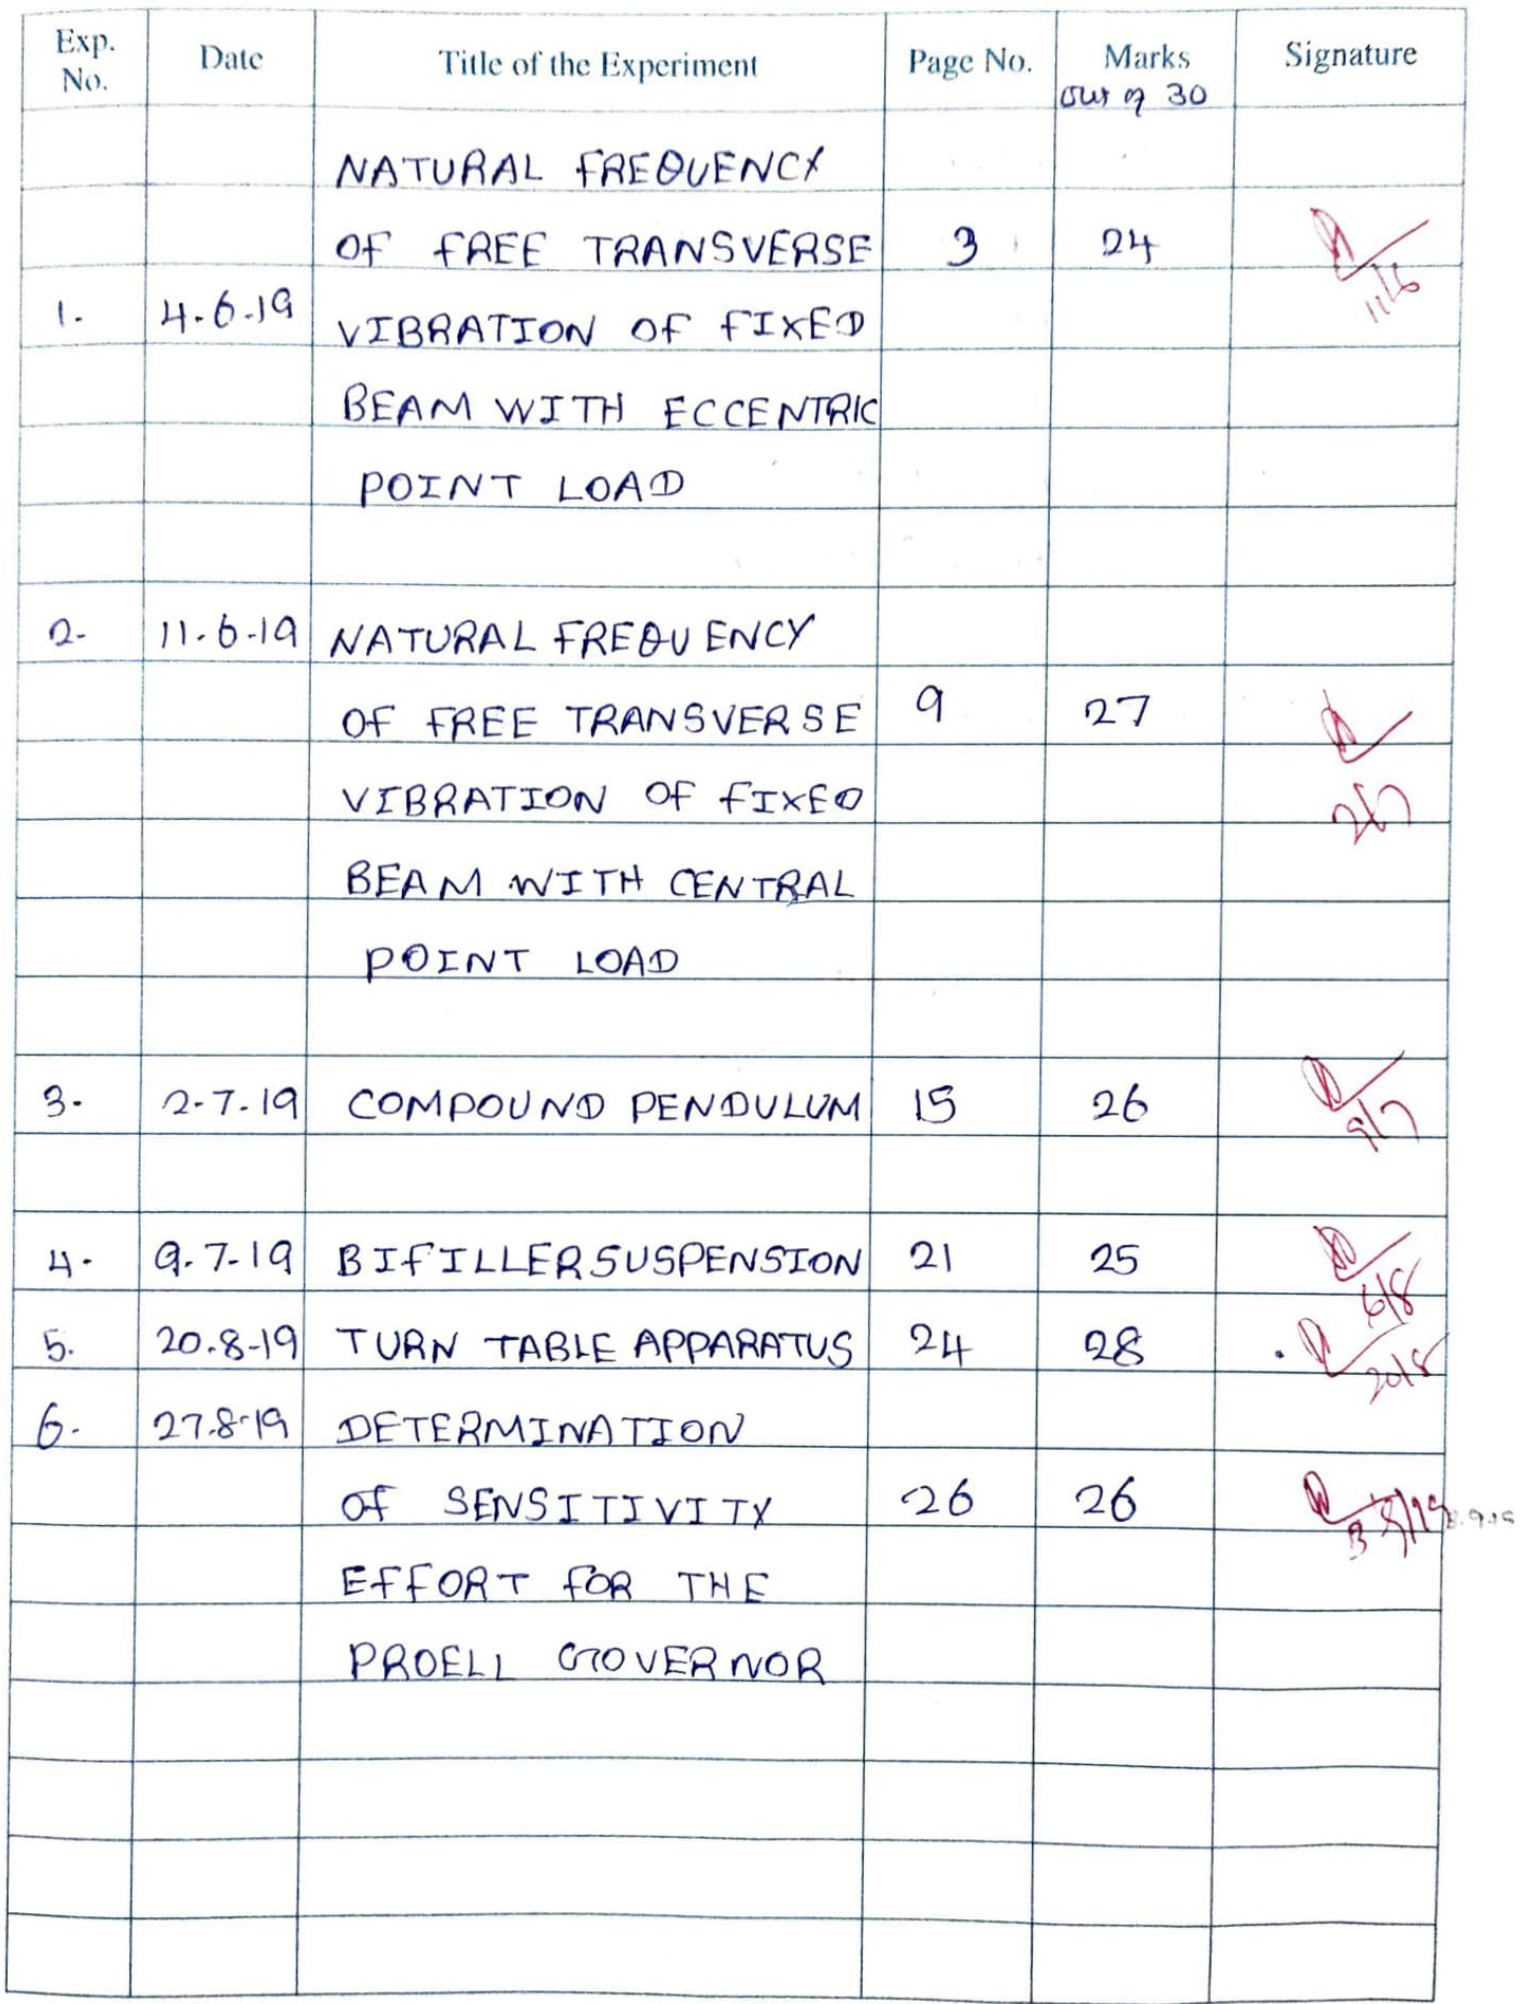 Exp. No. Date Title of the Experiment Page No. Marks Signature
out of 30
NATURAL FREQUENCY
OF FREE TRANSVERSE 3 24
11/6
1. 4.6.19 VIBRATION OF FIXED
BEAM WITH ECCENTRIC
POINT LOAD
2. 11.6.19 NATURAL FREQUENCY
OF FREE TRANSVERSE 9 27
VIBRATION OF FIXED 2/7
BEAM WITH CENTRAL
POINT LOAD
3. 2.7.19 COMPOUND PENDULUM 15 26
9/7
4. 9.7.19 BIFILLER SUSPENSION 21 25
6/8
5. 20.8.19 TURN TABLE APPARATUS 24 28
20/8
6. 27.8.19 DETERMINATION
OF SENSITIVITY 26 26
EFFORT FOR THE
PROELL GOVERNOR